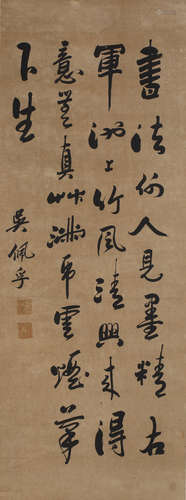 書法何人見墨精右
軍池上竹風清興來得
意真艸滿帋雲煙筆
下生
吳佩孚